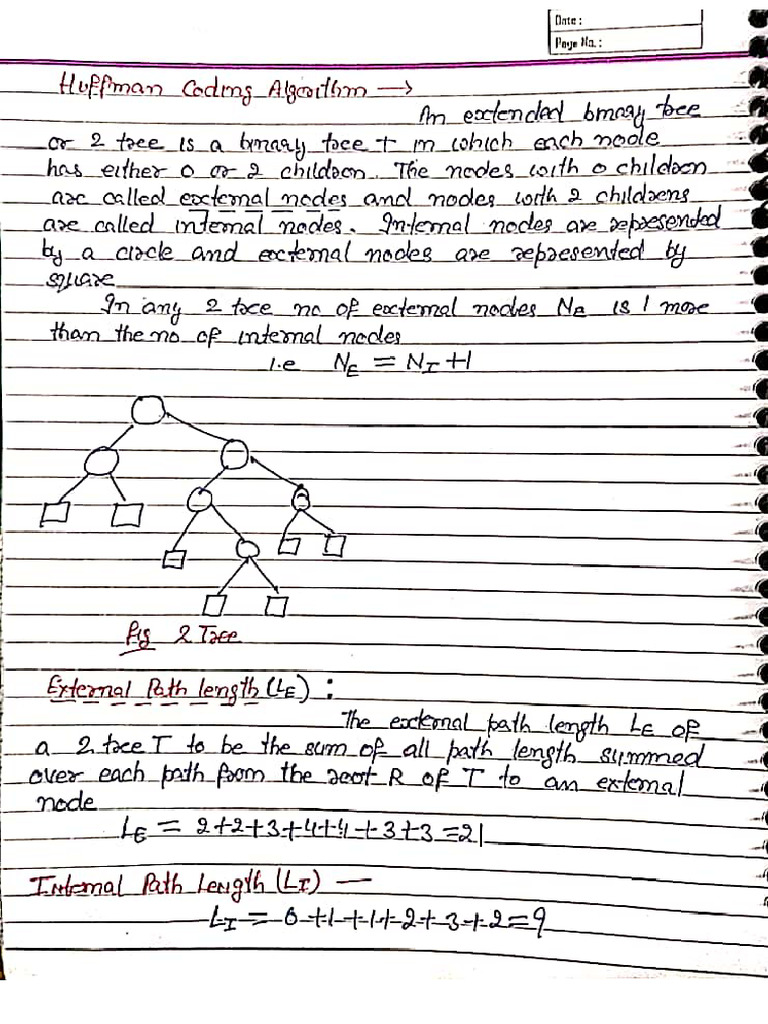 Date :
Page No. :
Huffman Coding Algorithm →
An extended binary tree
or 2 tree is a binary tree t in which each node
has either 0 or 2 children. The nodes with 0 children
are called external nodes and nodes with 2 childrens
are called internal nodes. Internal nodes are represented
by a circle and external nodes are represented by
square
In any 2 tree no of external nodes NE is 1 more
than the no of internal nodes
i.e NE = NI +1
fig 2 Tree
External Path length (LE) :
The external path length LE of
a 2 tree T to be the sum of all path length summed
over each path from the root R of T to an external
node
LE = 2+2+3+4+4+3+3=21
Internal Path Length (LI) —
LI = 0+1+1+2+3+2=9